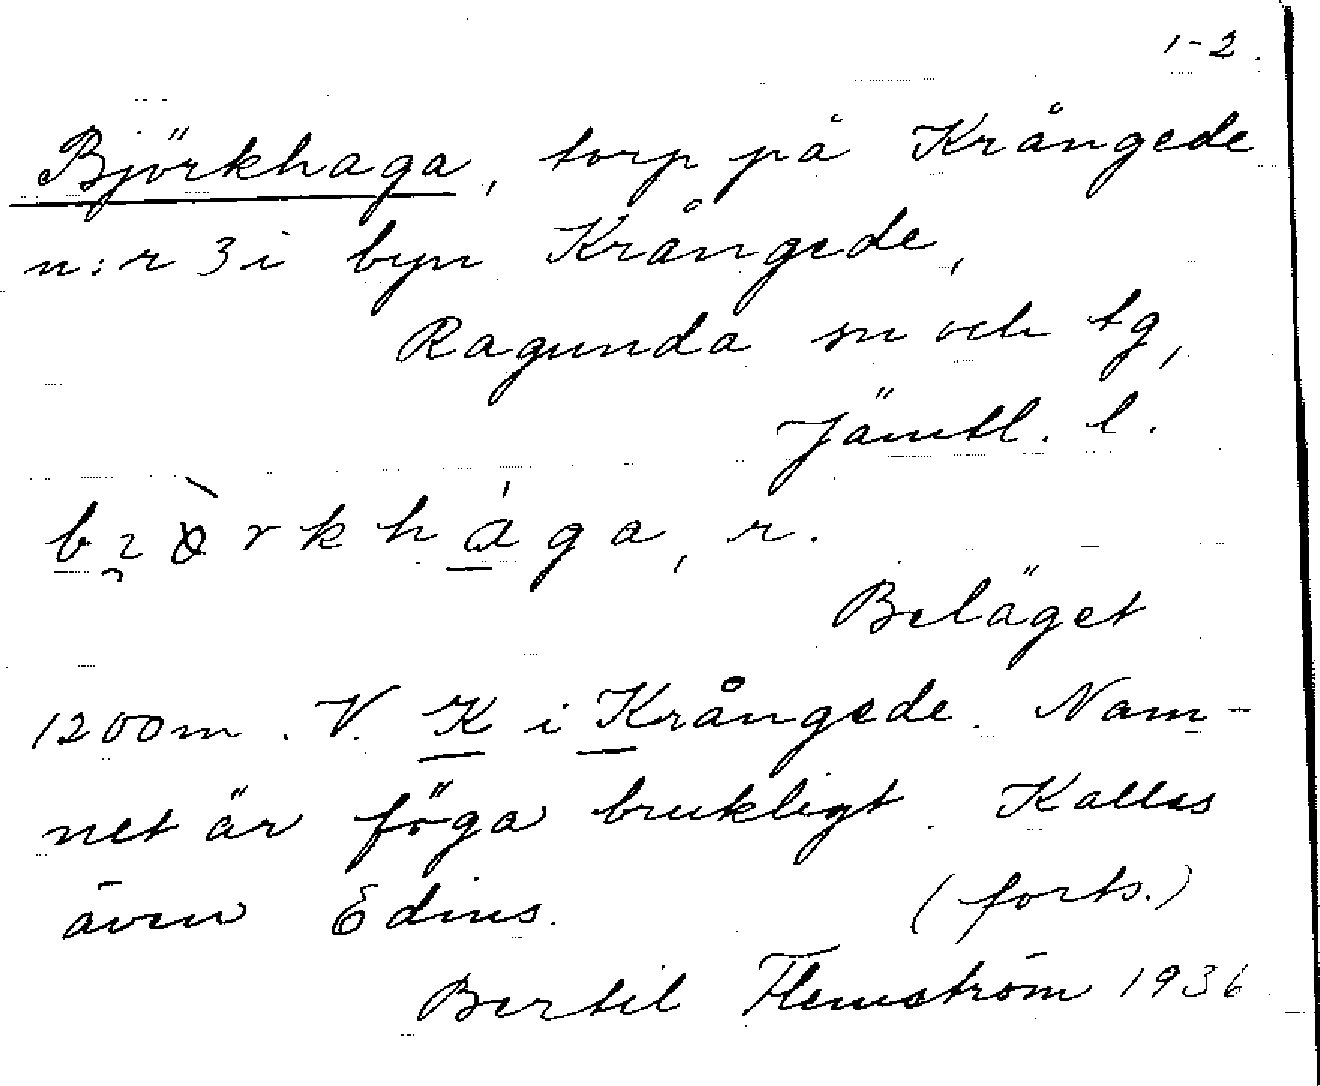 1-2.
Björkhaga, torp på Krångede
n:r 3 i byn Krångede,
Ragunda sn och tg,
Jämtl. l.
Beläget
1200m. V. K i Krångede. Nam-
net är föga brukligt. Kallas
även Edins. (forts.)
Bertil Flemström 1936